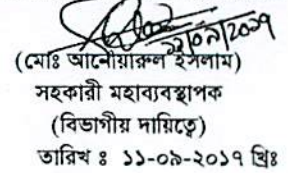 ১১/০৯/২০১৭
(মোঃ আনোয়ারুল ইসলাম)
সহকারী মহাব্যবস্থাপক
(বিভাগীয় দায়িত্বে)
তারিখ ঃ ১১-০৯-২০১৭ খ্রিঃ